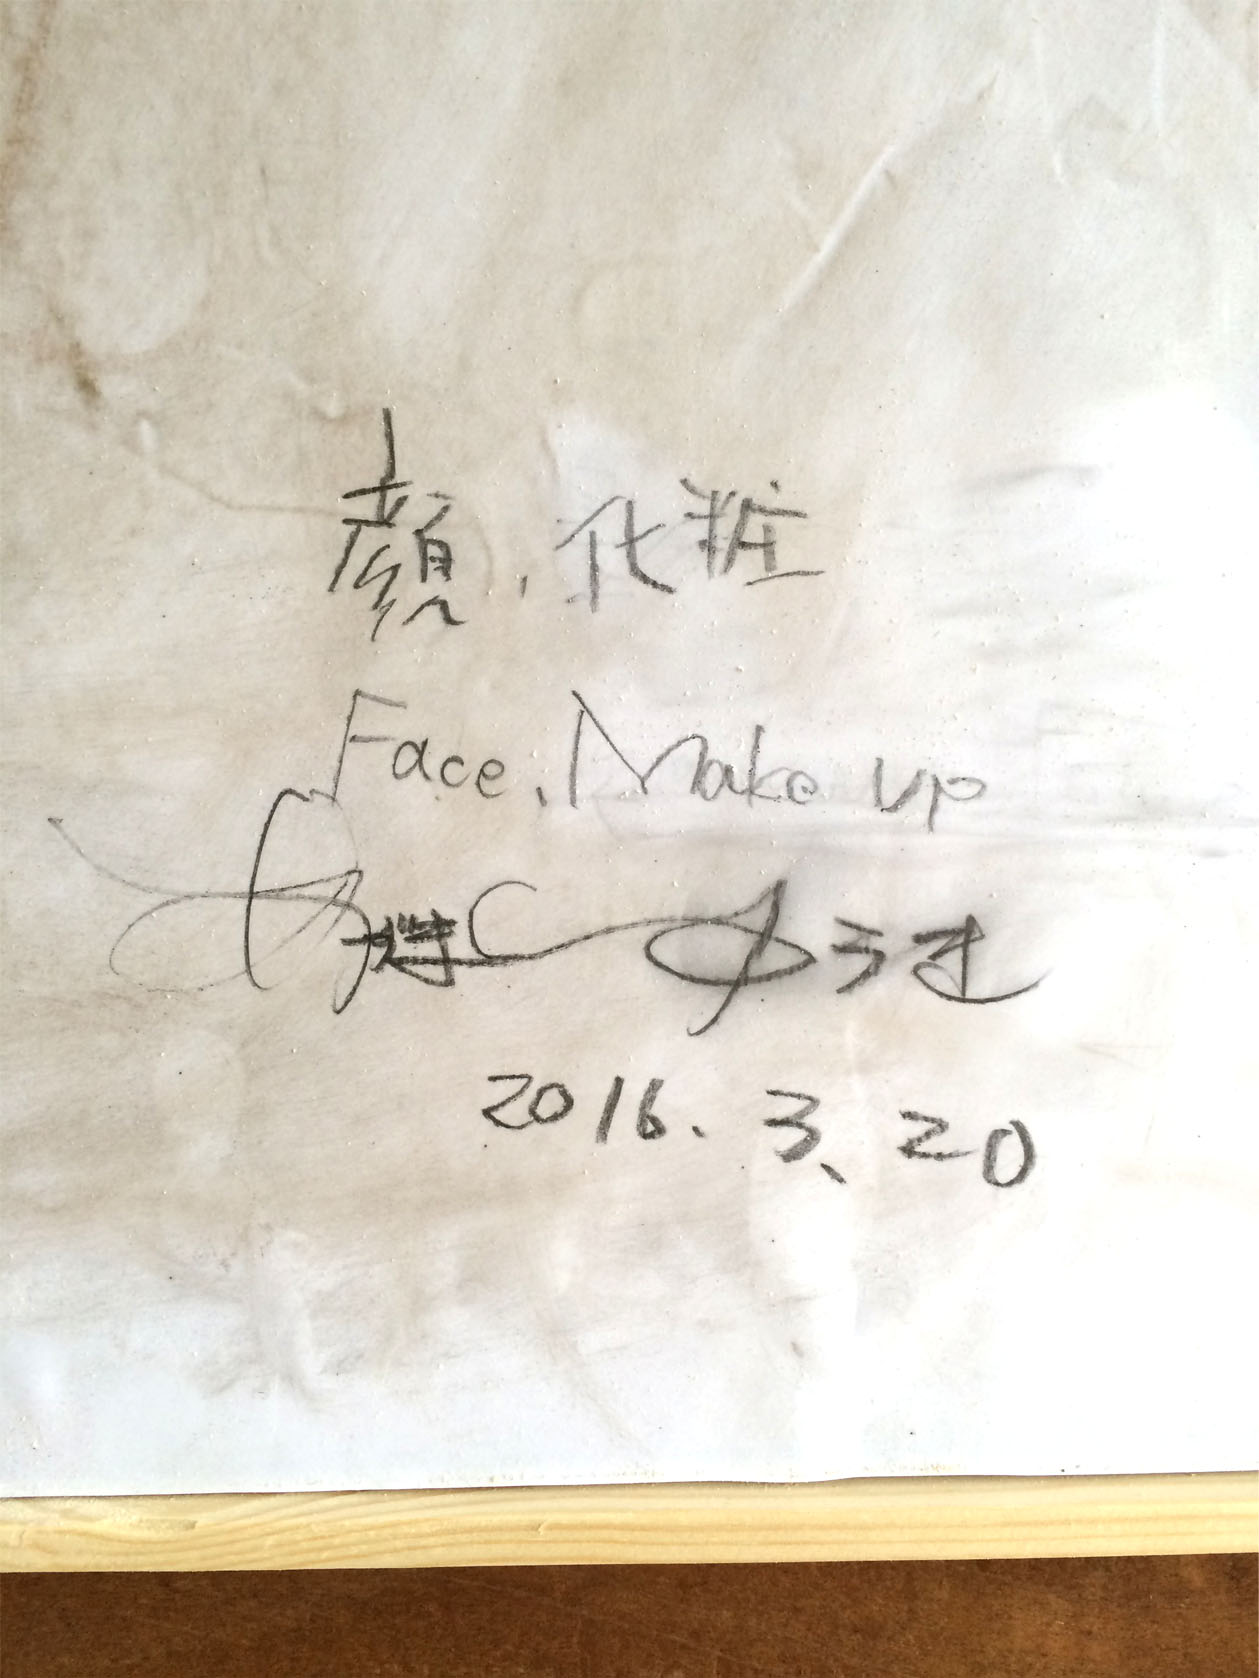 顔、化粧
Face, Make up
2016. 3、20